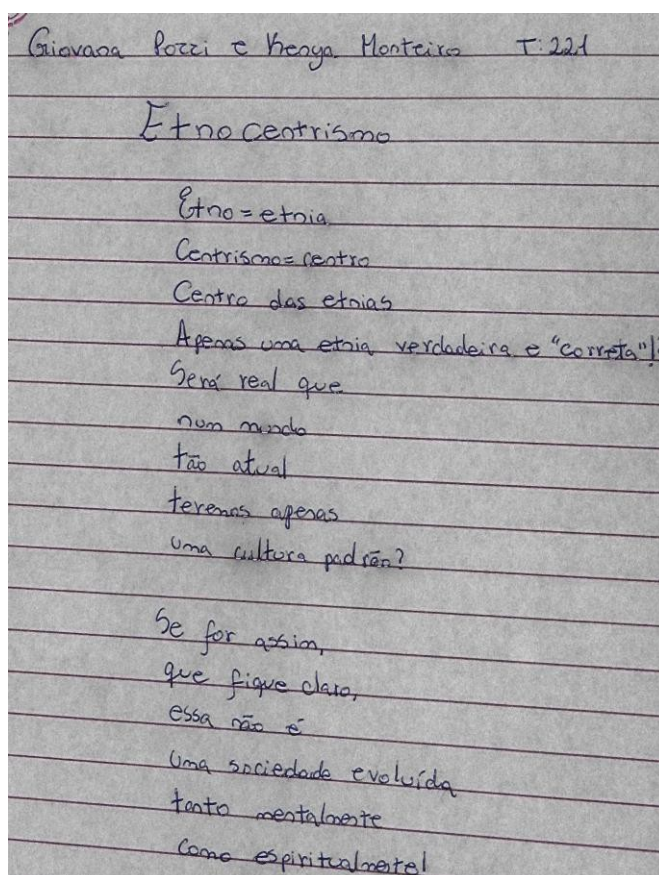 Giovana Pozzi e Kenya Monteiro T: 221
Etnocentrismo
Etno = etnia
Centrismo = centro
Centro das etnias
Apenas uma etnia verdadeira e "correta"!
Será real que
num mundo
tão atual
teremos apenas
uma cultura padrão?
Se for assim,
que fique claro,
essa não é
uma sociedade evoluída
tanto mentalmente
como espiritualmente!